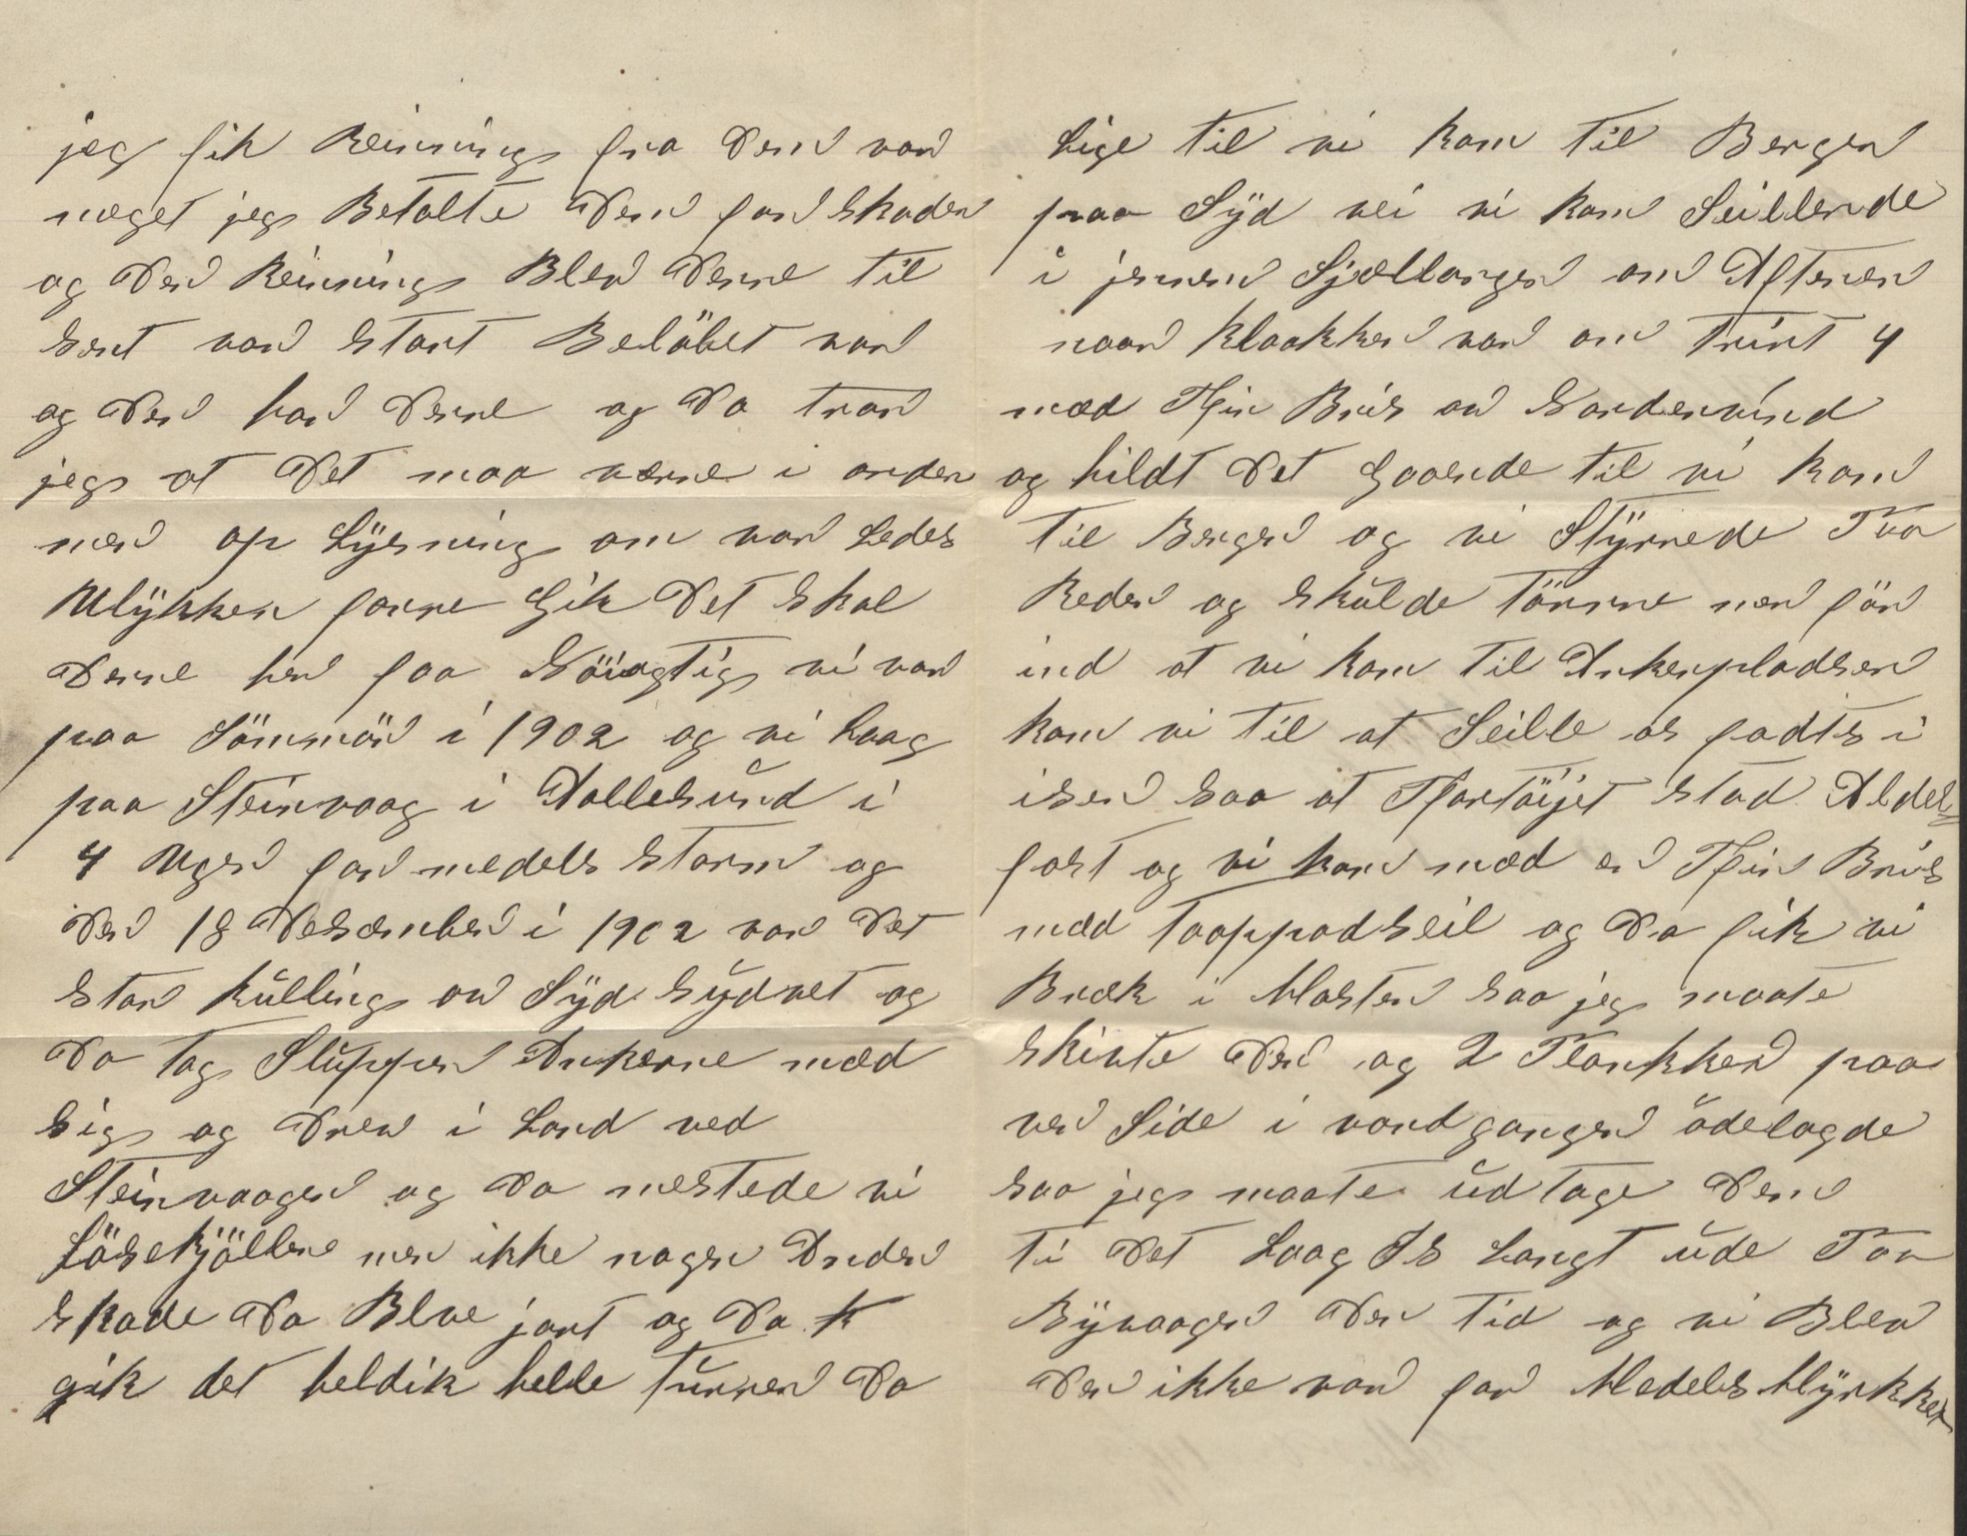 jeg fik Reinning fra Dem vor
meget jeg Betalte Dem for skaden
og Den Reinning Blev Derre til
sent vor stort Belöbet var
og Den har Derre og Da tror
jeg at Det maa værre i orden
men op Lÿsning om vor Ledes
Ulÿkken forre Gik Det skal
Derre her faa Nöiagtig vi var
paa Sömmör i 1902 og vi Laag
paa Steinvaag i Aallesund i
4 Uger for medels storm og
Den 18 Desæmber i 1902 var Det
stor kulling av Sÿd sÿdvet og
Da tog Sluppen Ankerne mæd
sig og Drev i Land ved
Steinvaagen og Da mestede vi
Lösekjöllene men ikke nogen Anden
skade Da Blve jort og Da
gik det heldik helle turren Da
Lige til vi kom til Bergen
paa Sÿd vei vi kom Seillende
i jennem Sjællangen om Aftenen
naar Klaakken var om trint 4
mæd Fin Bris av Nordenvind
og hildt Det Gaaende til vi kom
til Bergen og vi Stÿrrede Paa
Reden og skulde törrne men för
ind at vi kom til Ankerpladsen
kom vi til at Seille os fadts i
isen saa at Fartöijet stod Aldels
fast og vi kom mæd en Fin Bris
mæd Taappadseil og Da fik vi
Bræk i Masten saa jeg maate
skivte Den og 2 Plankker paa
ver Side i vandgangen ödelagde
saa jeg maate udtage Dem
ti Det Laag Is Langt ude Paa
Bÿvaagen Den tid og vi Blev
Den ikke var for Medels Mÿrkket